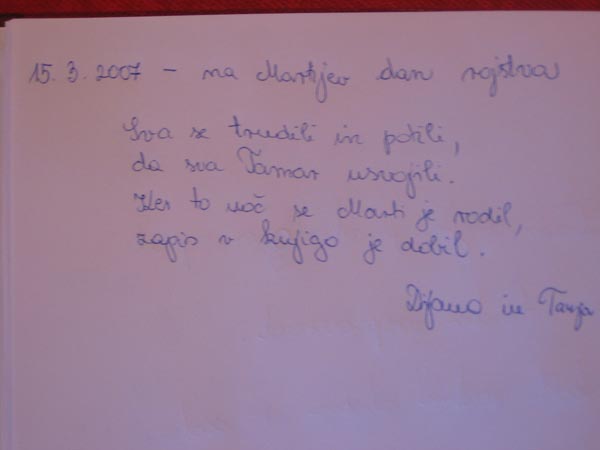 15. 3. 2007 - na Martijev dan rojstva
Sva se trudili in potili,
da sva Tamar usvojili.
Ker to noč se Marti je rodil,
zapis v knjigo je dobil.
Dijana in Tanja